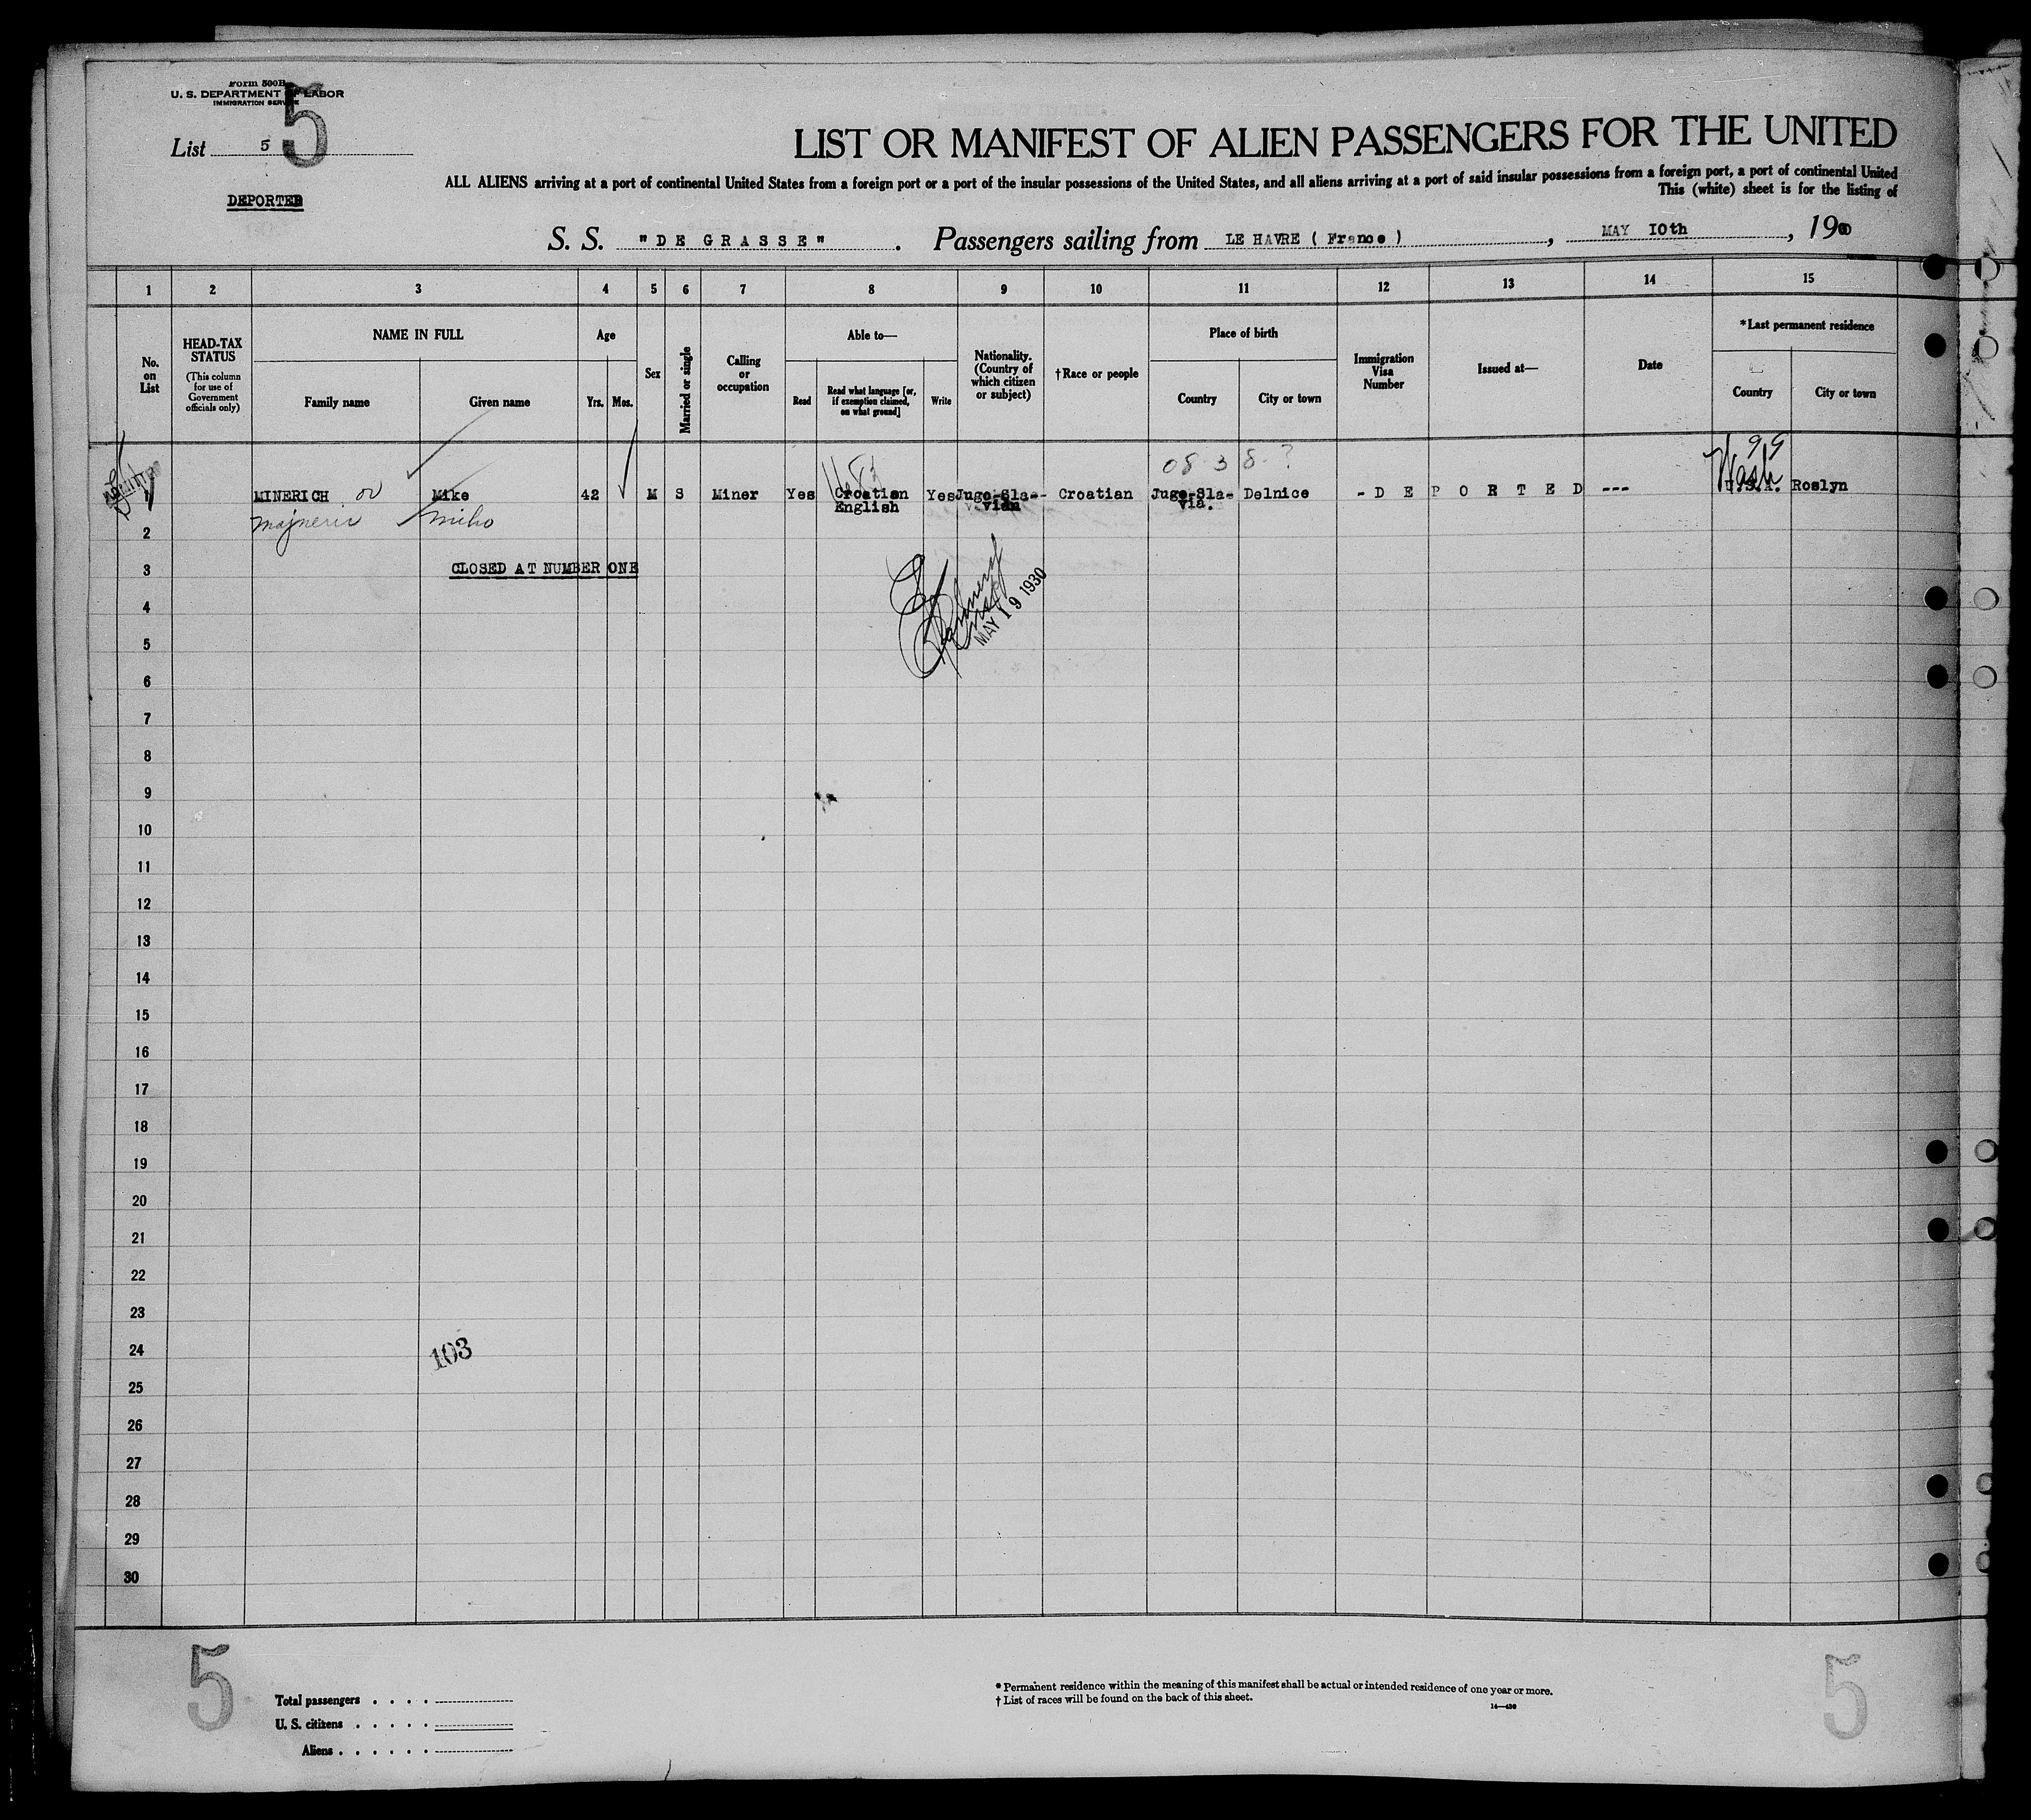 Form 500B
U. S. DEPARTMENT OF LABOR
IMMIGRATION SERVICE
5
List 5
DEPORTED
LIST OR MANIFEST OF ALIEN PASSENGERS FOR THE UNITED
ALL ALIENS arriving at a port of continental United States from a foreign port or a port of the insular possessions of the United States, and all aliens arriving at a port of said insular possessions from a foreign port, a port of continental United
This (white) sheet is for the listing of
S. S. "DE GRASSE". Passengers sailing from LE HAVRE ( France ), MAY 10th, 19
1 2 3 4 5 6 7 8 9 10 11 12 13 14 15
No. on List
HEAD-TAX STATUS (This column for use of Government officials only)
NAME IN FULL
Family name
Given name
Age
Yrs. Mos.
Sex
Married or single
Calling or occupation
Able to—
Read
Read what language [or, if exemption claimed, on what ground]
Write
Nationality. (Country of which citizen or subject)
†Race or people
Place of birth
Country
City or town
Immigration Visa Number
Issued at—
Date
*Last permanent residence
Country
City or town
08 3 8 ?
99
Wash
1 MINERICH or Mike 42 M S Miner Yes Croatian Yes Jugo-Sla- Croatian Jugo-Sla- Delnice - D E P O R T E D --- U.S.A. Roslyn
English vian via.
Majneric Miho
2
3 CLOSED AT NUMBER ONE
4
MAY 19 1930
5
6
7
8
9
10
11
12
13
14
15
16
17
18
19
20
21
22
23
24 103
25
26
27
28
29
30
5
5
Total passengers . . . .
U. S. citizens . . . . .
Aliens . . . . . .
* Permanent residence within the meaning of this manifest shall be actual or intended residence of one year or more.
† List of races will be found on the back of this sheet.
14—430